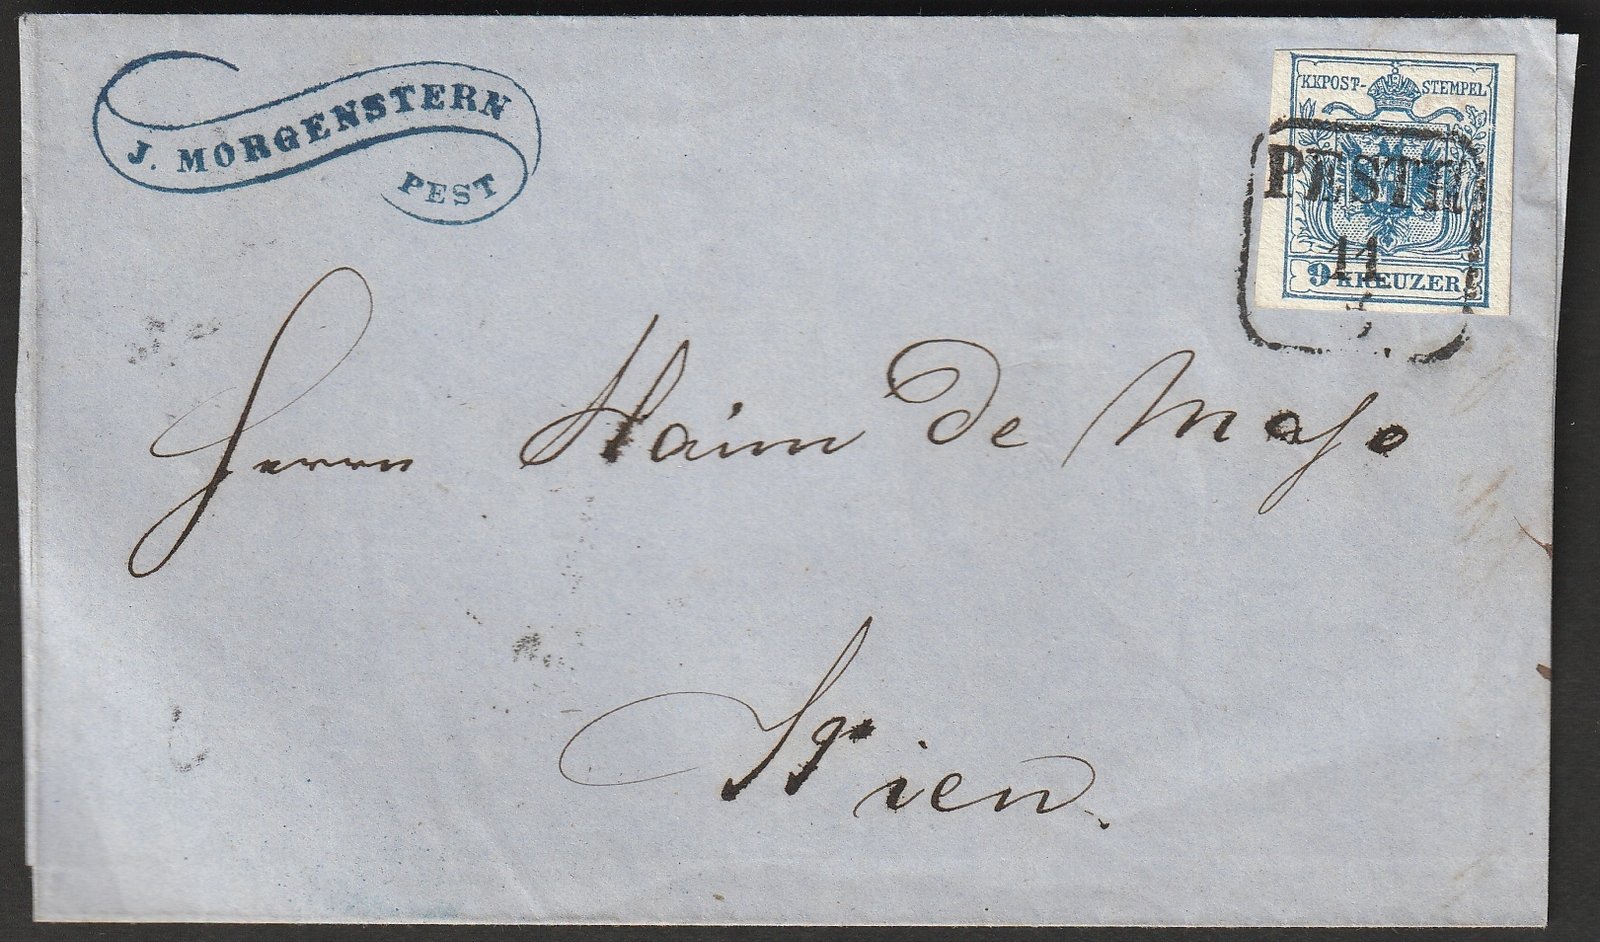 J. MORGENSTERN
PEST
KKPOST-STEMPEL
PESTH
11
9 KREUZER
Herrn Haim De Majo
Wien.